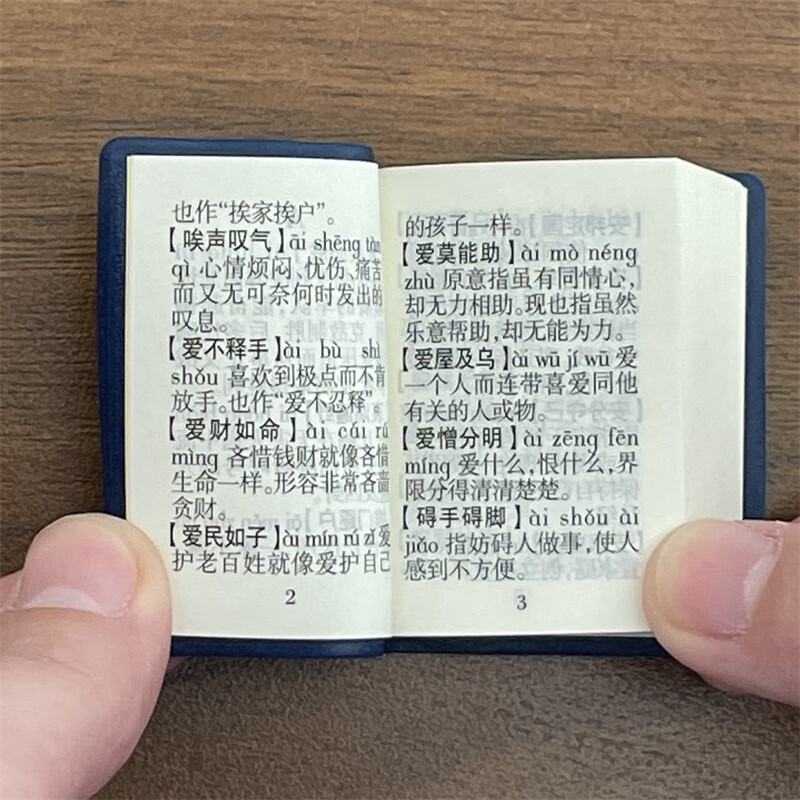 也作“挨家挨户”。
【唉声叹气】āi shēng tàn
qì 心情烦闷、忧伤、痛苦
而又无可奈何时发出的
叹息。
【爱不释手】ài bù shì
shǒu 喜欢到极点而不肯
放手。也作“爱不忍释”。
【爱财如命】ài cái rú
mìng 吝惜钱财就像吝惜
生命一样。形容非常吝啬
贪财。
【爱民如子】ài mín rú zǐ 爱
护老百姓就像爱护自己
2
的孩子一样。
【爱莫能助】ài mò néng
zhù 原意指虽有同情心，
却无力相助。现也指虽然
乐意帮助，却无能为力。
【爱屋及乌】ài wū jí wū 爱
一个人而连带喜爱同他
有关的人或物。
【爱憎分明】ài zēng fēn
míng 爱什么，恨什么，界
限分得清清楚楚。
【碍手碍脚】ài shǒu ài
jiǎo 指妨碍人做事，使人
感到不方便。
3